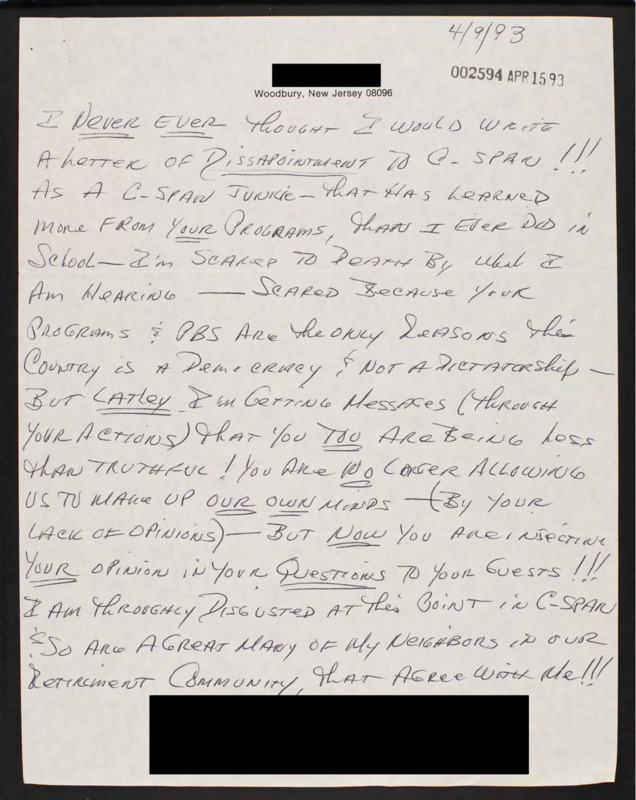 4/9/93
002594 APR 15 93
Woodbury, New Jersey 08096
I NEVER EVER THOUGHT I WOULD WRITE
A LETTER OF DISSAPOINTMENT TO C-SPAN!!!
AS A C-SPAN JUNKIE - THAT HAS LEARNED
MORE FROM YOUR PROGRAMS, THAN I EVER DID IN
SCHOOL - I'M SCARED TO DEATH BY WHAT I
AM HEARING — SCARED BECAUSE YOUR
PROGRAMS & PBS ARE THE ONLY REASONS THIS
COUNTRY IS A DEMOCRACY & NOT A DICTATORSHIP -
BUT LATLEY I'M GETTING MESSAGES (THROUGH
YOUR ACTIONS) THAT YOU TOO ARE BEING LESS
THAN TRUTHFUL! YOU ARE NO LOGER ALLOWING
US TO MAKE UP OUR OWN MINDS - (BY YOUR
LACK OF OPINIONS) - BUT NOW YOU ARE INSECTING
YOUR OPINION IN YOUR QUESTIONS TO YOUR GUESTS!!!
I AM THROUGHLY DISGUSTED AT THIS POINT IN C-SPAN
& SO ARE A GREAT MANY OF MY NEIGHBORS IN OUR
RETIREMENT COMMUNITY, THAT AGREE WITH ME!!!